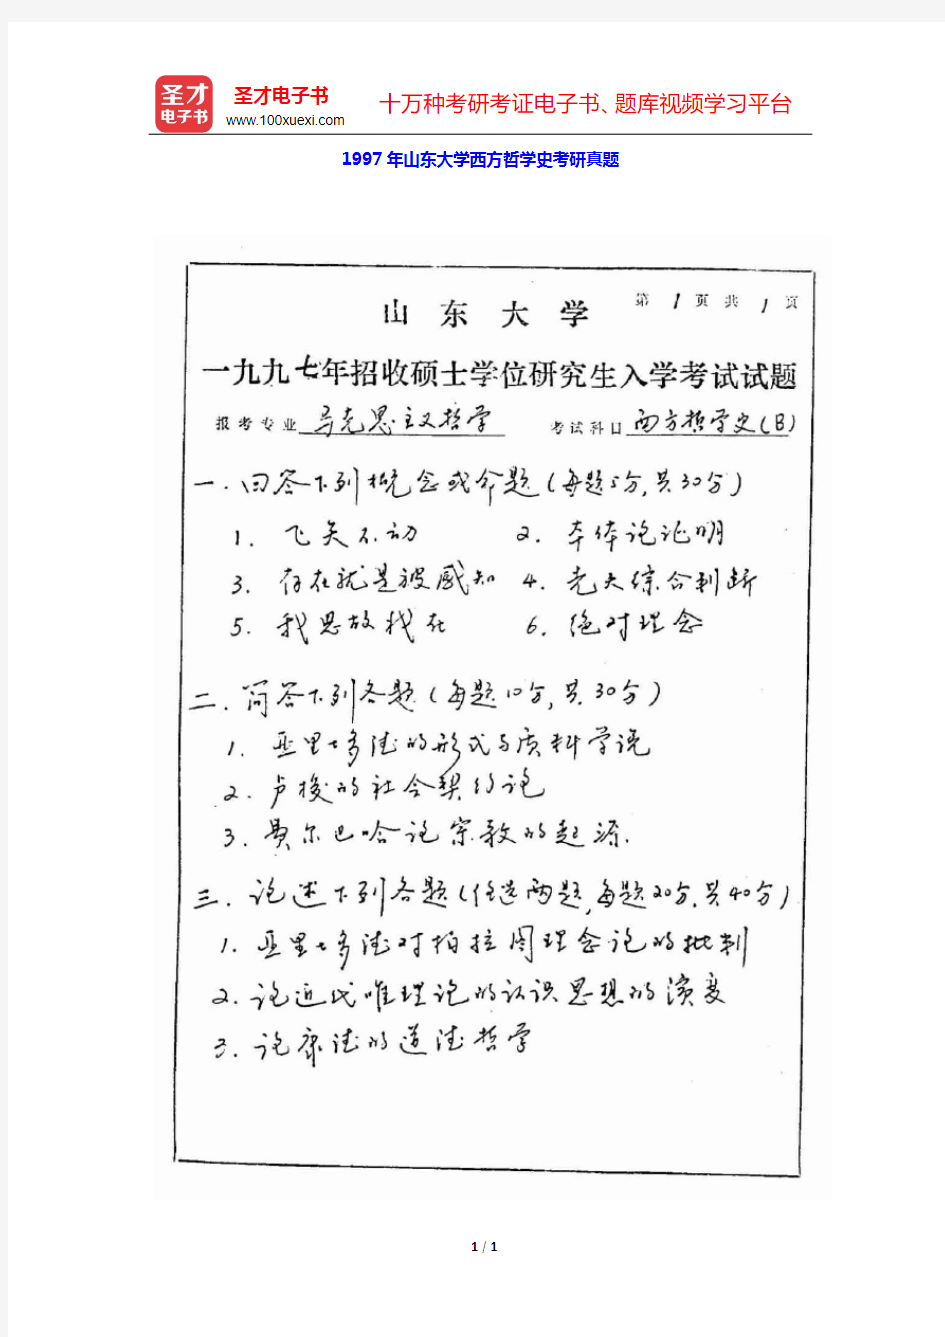 圣才电子书
圣才电子书
www.100xuexi.com
十万种考研考证电子书、题库视频学习平台
1997年山东大学西方哲学史考研真题
第1页共1页
山东大学
一九九七年招收硕士学位研究生入学考试试题
报考专业 马克思主义哲学 考试科目 西方哲学史(B)
一.回答下列概念或命题(每题5分,共30分)
1. 飞矢不动 2. 本体论证明
3. 存在就是被感知 4. 先天综合判断
5. 我思故我在 6. 绝对理念
二.简答下列各题(每题10分,共30分)
1. 亚里士多德的形式与质料学说
2. 卢梭的社会契约论
3. 费尔巴哈论宗教的起源.
三.论述下列各题(任选两题,每题20分.共40分)
1. 亚里士多德对柏拉图理念论的批判
2. 论近代唯理论的认识思想的演变
3. 论康德的道德哲学
1 / 1